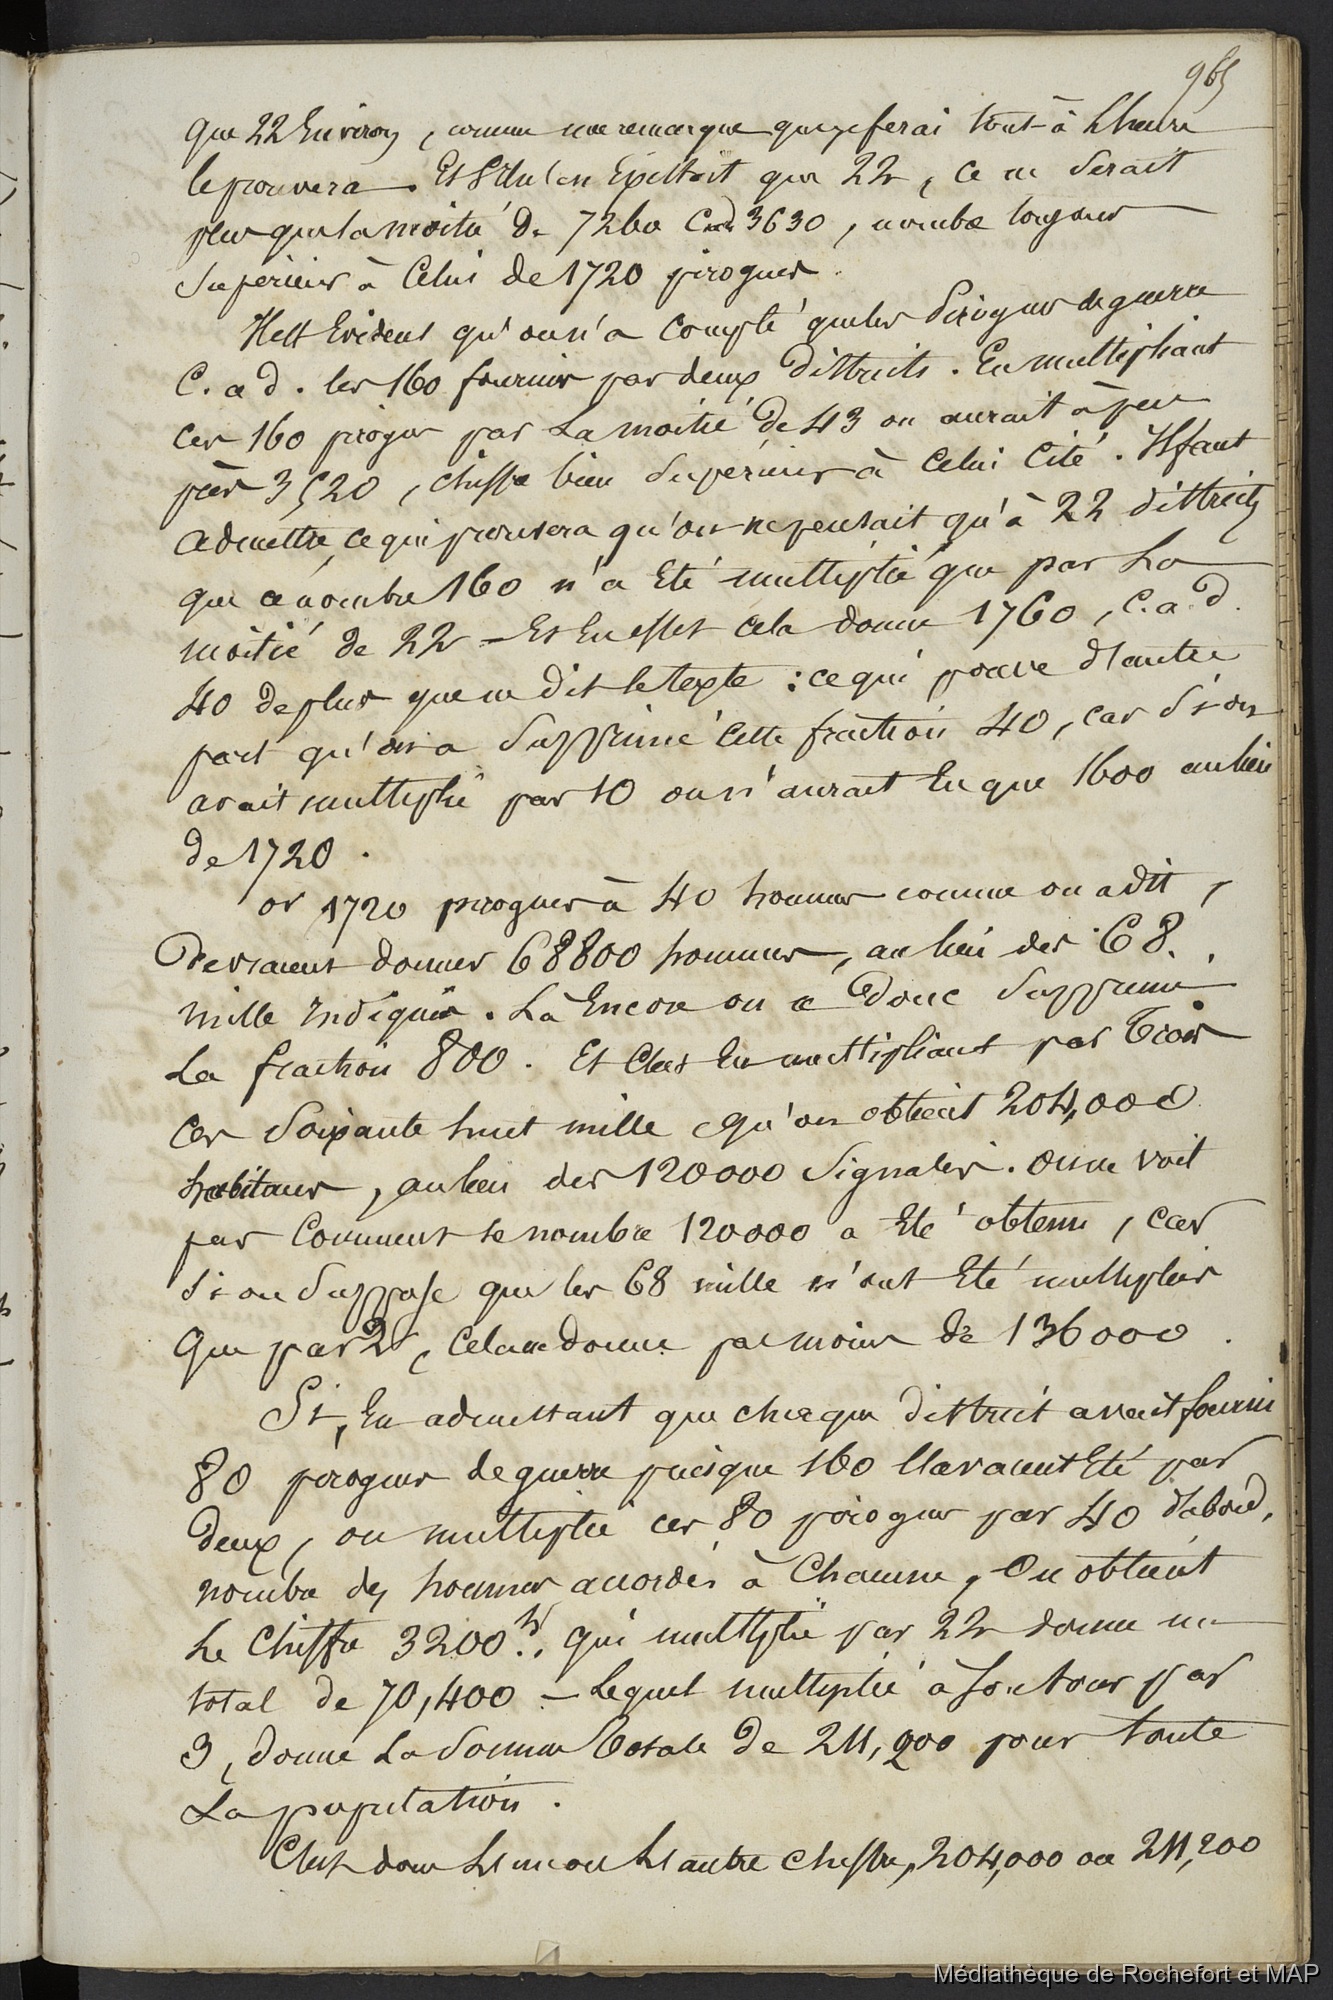 965
que 22 Environ, comme une remarque que je ferai tout-à L'heure
le prouvera. Et S'il n'en Existait que 22, ce ne serait
plus que la moitié de 7260 C.a.d. 3630, nombre toujours
supérieur à Celui de 1720 pirogues.
Il est Evident qu'on n'a compté que les Pirogues de guerre
C. a d. les 160 fournies par deux Districts. En multipliant
ces 160 pirogues par La moitié de 43 on aurait à peu
près 3520, chiffre bien supérieur à Celui Cité. Il faut
admettre, ce qui prouvera qu'on ne pensait qu'à 22 districts
que ce nombre 160 n'a Eté multiplié que par La
moitié de 22 — Et En effet cela donne 1760, C. a. d.
40 de plus que ne dit le texte : ce qui prouve d'autre
part qu'on a Supprimé cette fraction 40, car Si on
avait multiplié par 10 on n'aurait Eu que 1600 au lieu
de 1720.
or 1720 pirogues à 40 hommes comme on a dit,
Devraient donner 68800 hommes, au lieu des 68.
mille indiqués. Là Encore on a donc Supprimé
La fraction 800. Et C'est En multipliant par Trois
ces Soixante huit mille qu'on obtient 204,000
habitans, au lieu des 120000 Signalés. On ne voit
pas Comment le nombre 120000 a Eté obtenu, car
Si on Suppose que les 68 mille n'ont Eté multipliés
que par 2, cela ne donne pas moins de 136000.
Si, En admettant que chaque district avait fourni
80 pirogues de guerre puisque 160 l'avaient Eté par
Deux, on multiplie ces 80 pirogues par 40 d'abord,
nombre des hommes accordés à Chacune, On obtient
Le Chiffre 3200 h., qui multiplié par 22 donne un
total de 70,400 — Lequel multiplié à Son tour par
3, donne La Somme Totale de 211,200 pour toute
La population.
C'est donc L'un ou L'autre chiffre, 204,000 ou 211,200
Médiathèque de Rochefort et MAP